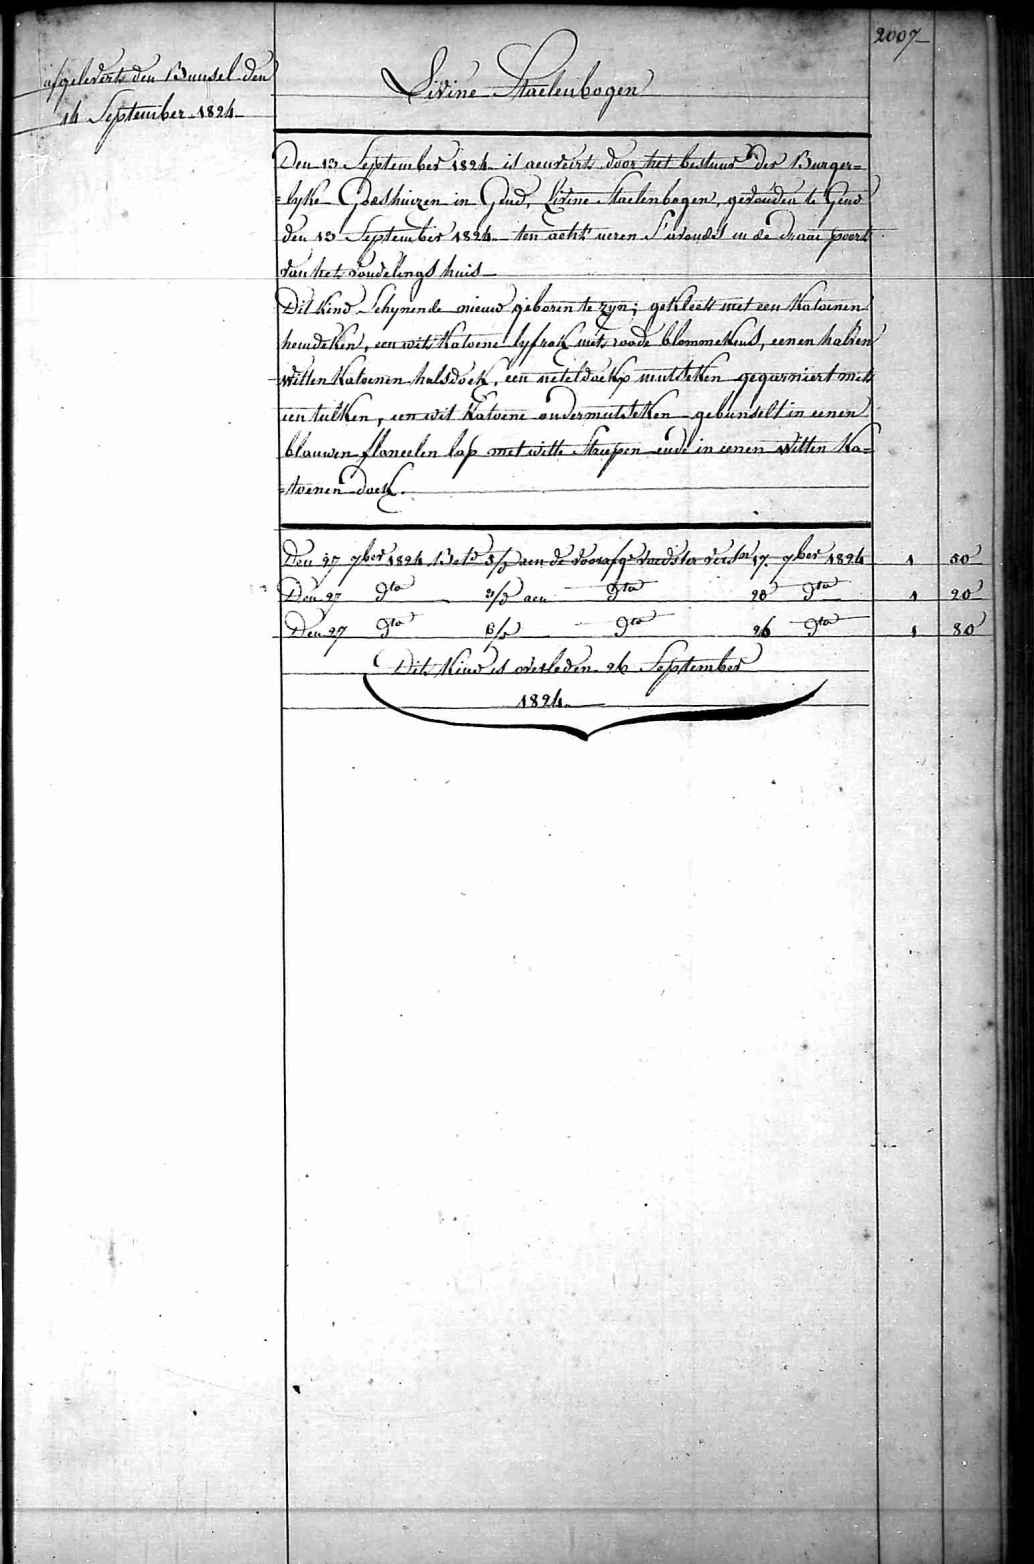 2007
afgeleverd den Bunsel den
14 September 1824
Livine Staelenbogen
Den 13 September 1824 is aenveirt door het bestuur der Burger=
=lyke Godshuizen in Gend, Livine Staelenbogen, gevonden te Gend
den 13 September 1824 ten acht ueren S'avonds in de draai poort
van het vondelings huis
Dit Kind Schynende nieuw geboren te zyn; gekleed met een Katoenen
hemdeken, een wit Katoene lyfrok met roode blommekens, eenen halven
Witten Katoenen halsdoek, een neteldoekx mutseken gegarniert met
een tulken, een wit Katoene ondermutseken gebunselt in eenen
blauwen flaneelen lap met witte Streepen ende in eenen Witten Ka=
=toenen doek.
Den 27 7ber 1824 Betd 3/m aen de voorafge voedster 17. 7ber 1824 1 50
Den 27 dto 3/m aen dto 20 dto 1 20
Den 27 dto 6/m dto 26 dto 1 80
Dit Kind is overleden 26 September
1824